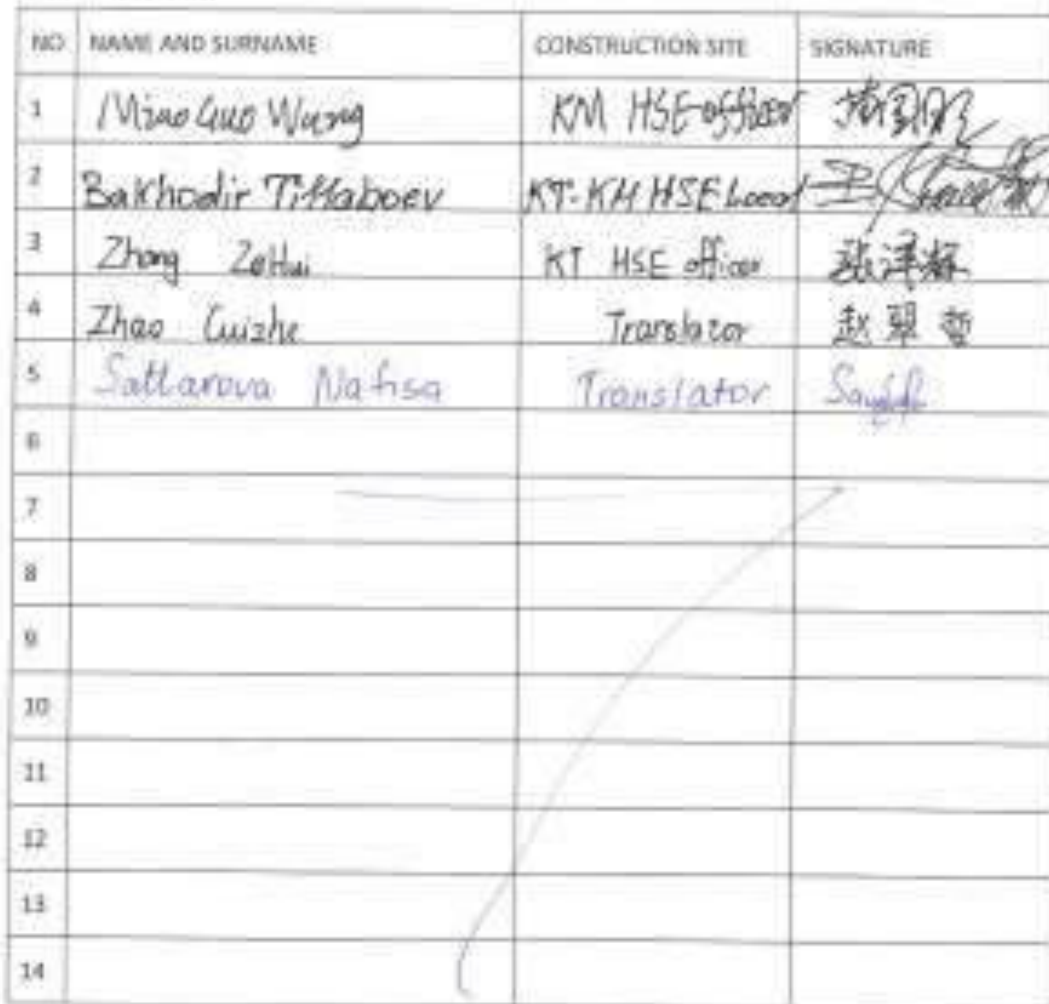 NO NAME AND SURNAME CONSTRUCTION SITE SIGNATURE
1 Miao Guo Wang KM HSE officer
2 Bakhodir Tillaboev KT-KM HSE
3 Zhang ZeHui KT HSE officer 张泽辉
4 Zhao Cuizhe Translator 赵翠哲
5 Sattarova Nafisa Translator
6
7
8
9
10
11
12
13
14